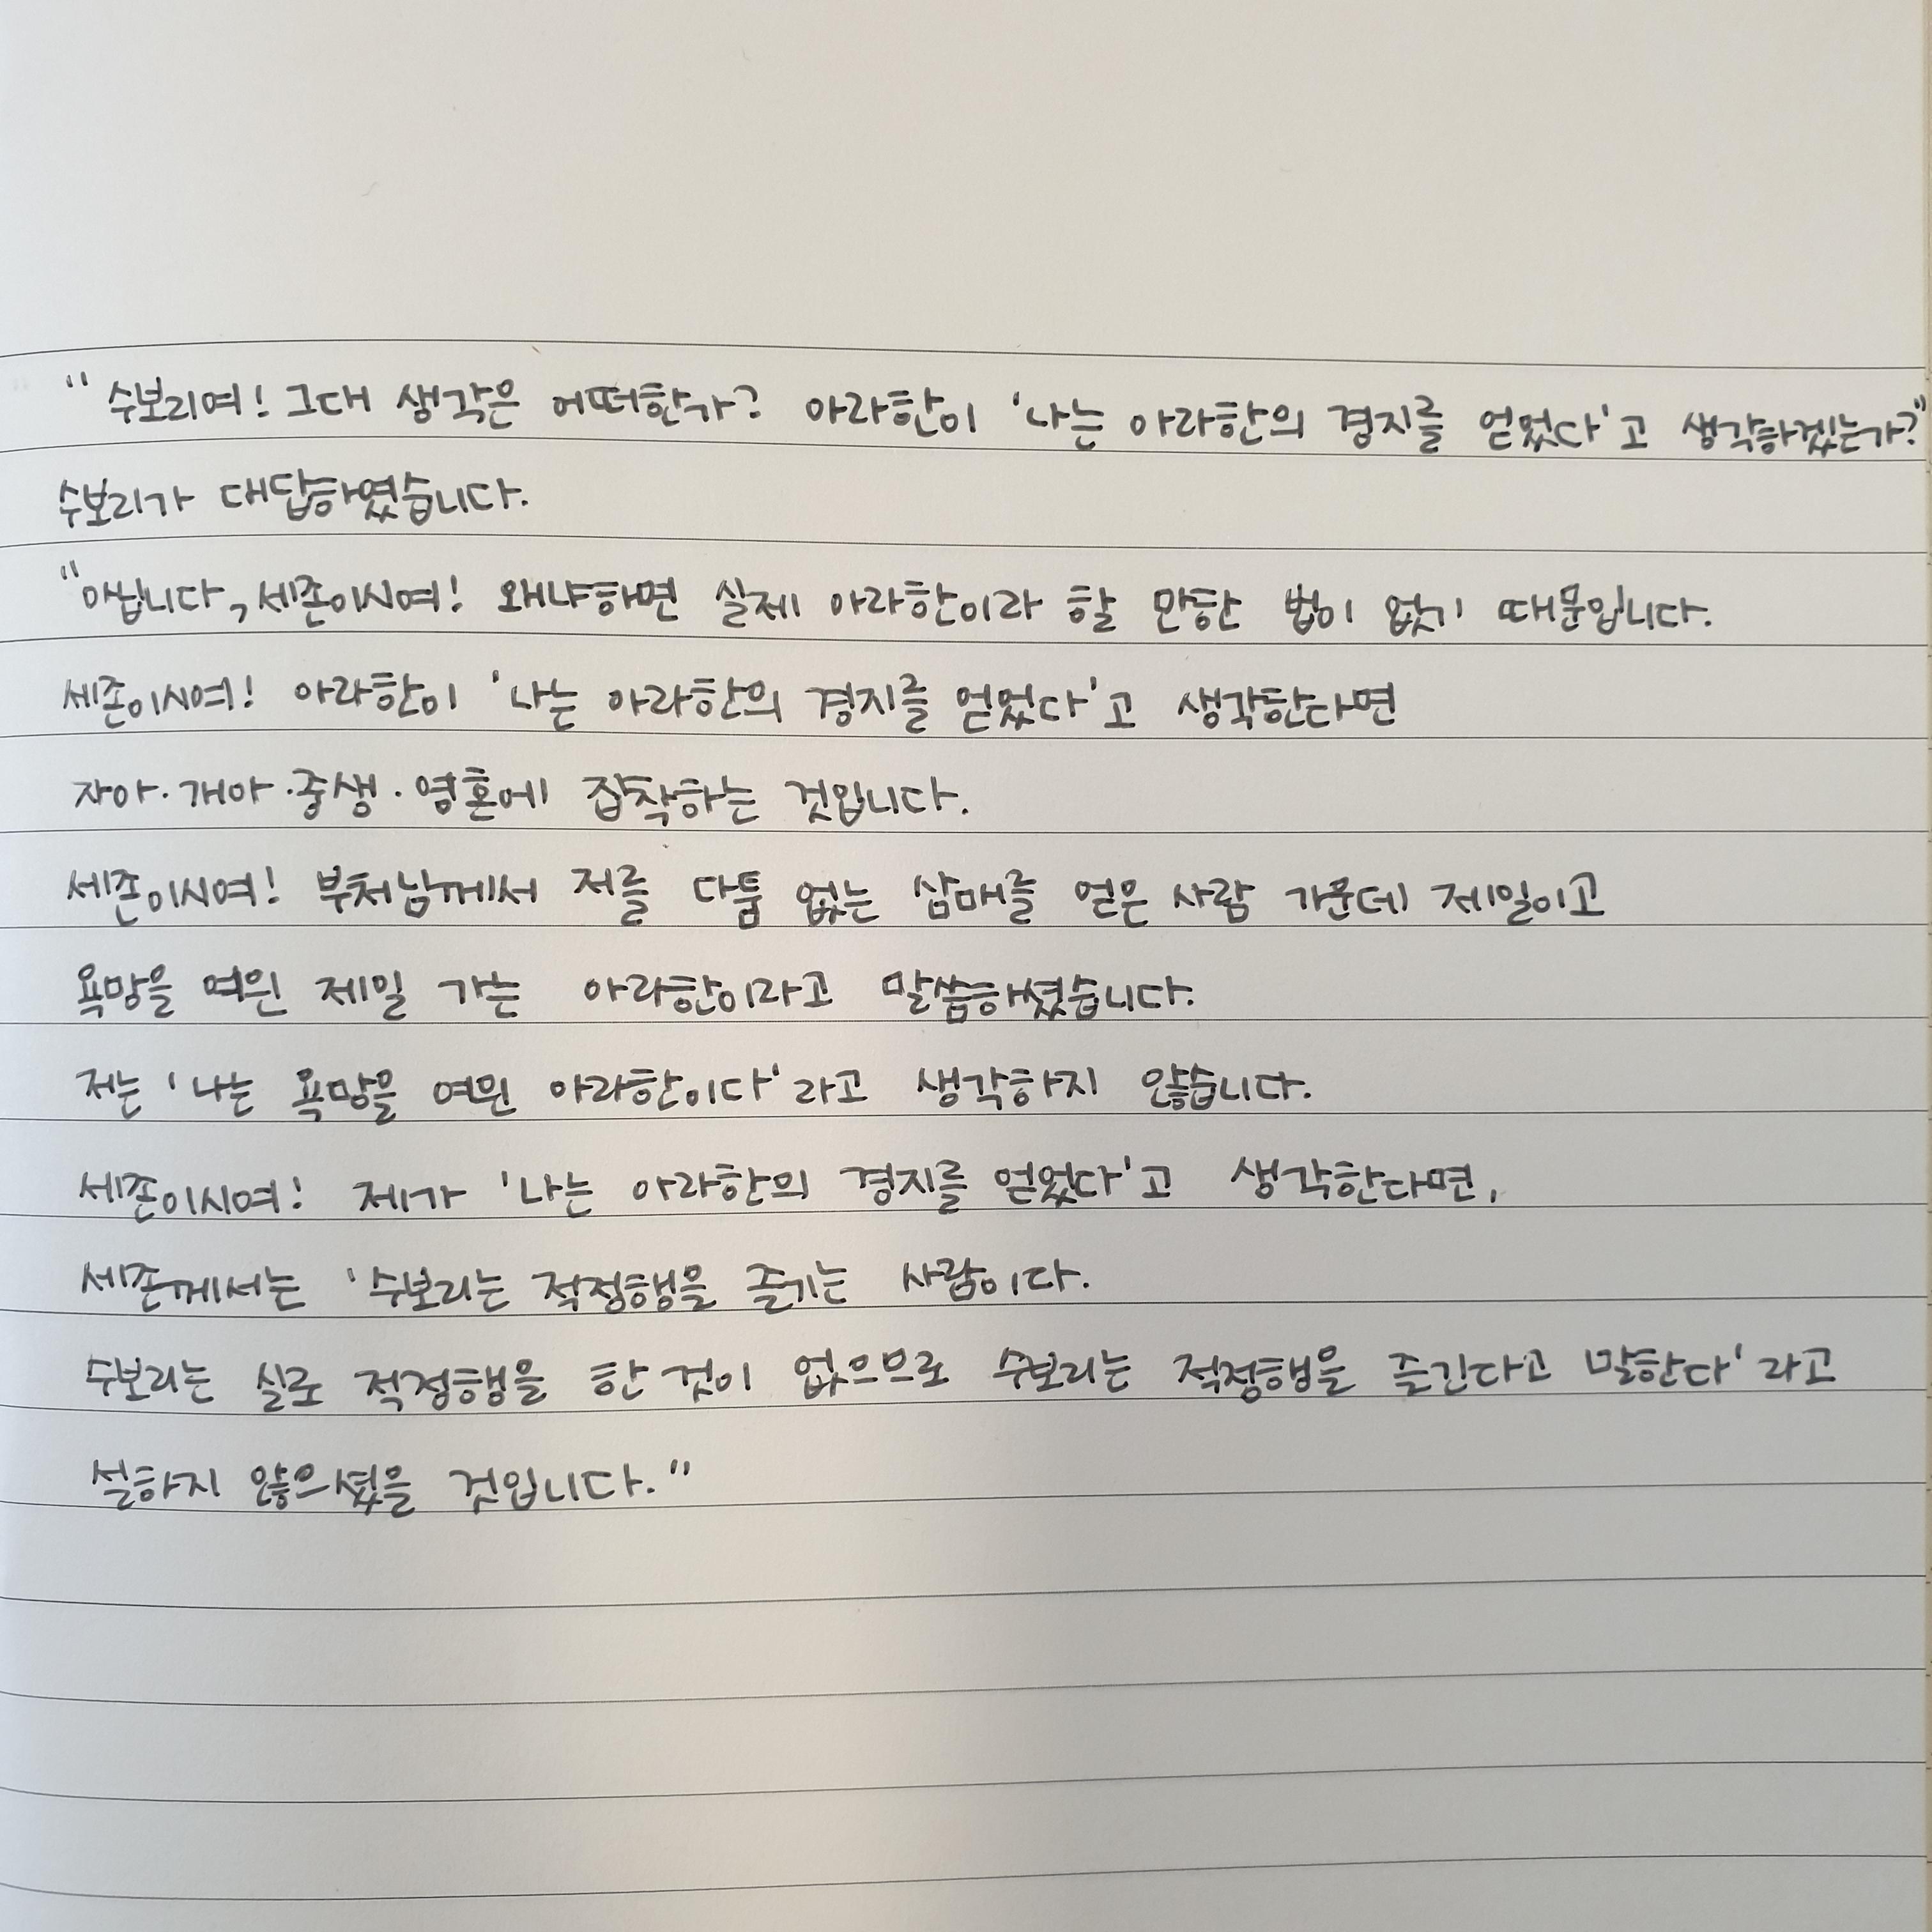 "수보리여! 그대 생각은 어떠한가? 아라한이 '나는 아라한의 경지를 얻었다'고 생각하겠는가?"
수보리가 대답하였습니다.
"아닙니다, 세존이시여! 왜냐하면 실제 아라한이라 할 만한 법이 없기 때문입니다.
세존이시여! 아라한이 '나는 아라한의 경지를 얻었다'고 생각한다면
자아·개아·중생·영혼에 집착하는 것입니다.
세존이시여! 부처님께서 저를 다툼 없는 삼매를 얻은 사람 가운데 제일이고
욕망을 여읜 제일 가는 아라한이라고 말씀하셨습니다.
저는 '나는 욕망을 여읜 아라한이다'라고 생각하지 않습니다.
세존이시여! 제가 '나는 아라한의 경지를 얻었다'고 생각한다면,
세존께서는 '수보리는 적정행을 즐기는 사람이다.
수보리는 실로 적정행을 한 것이 없으므로 수보리는 적정행을 즐긴다고 말한다'라고
설하지 않으셨을 것입니다."